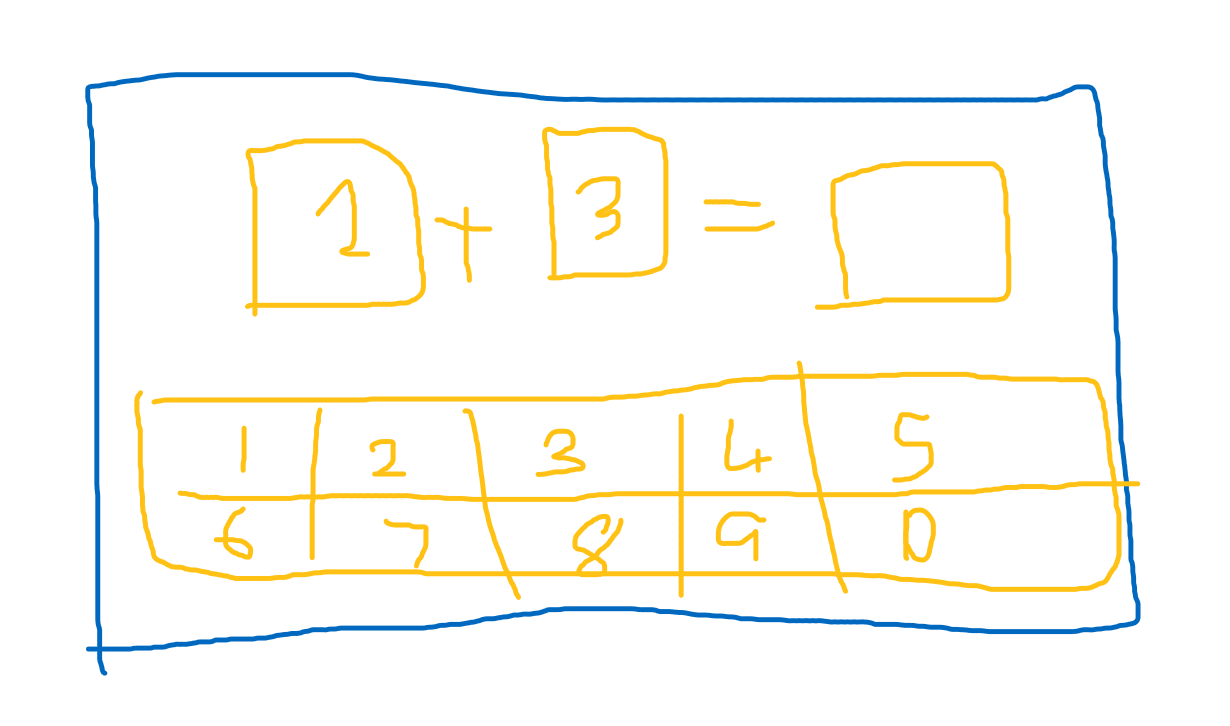 1 + 3 =
1 2 3 4 5
6 7 8 9 0